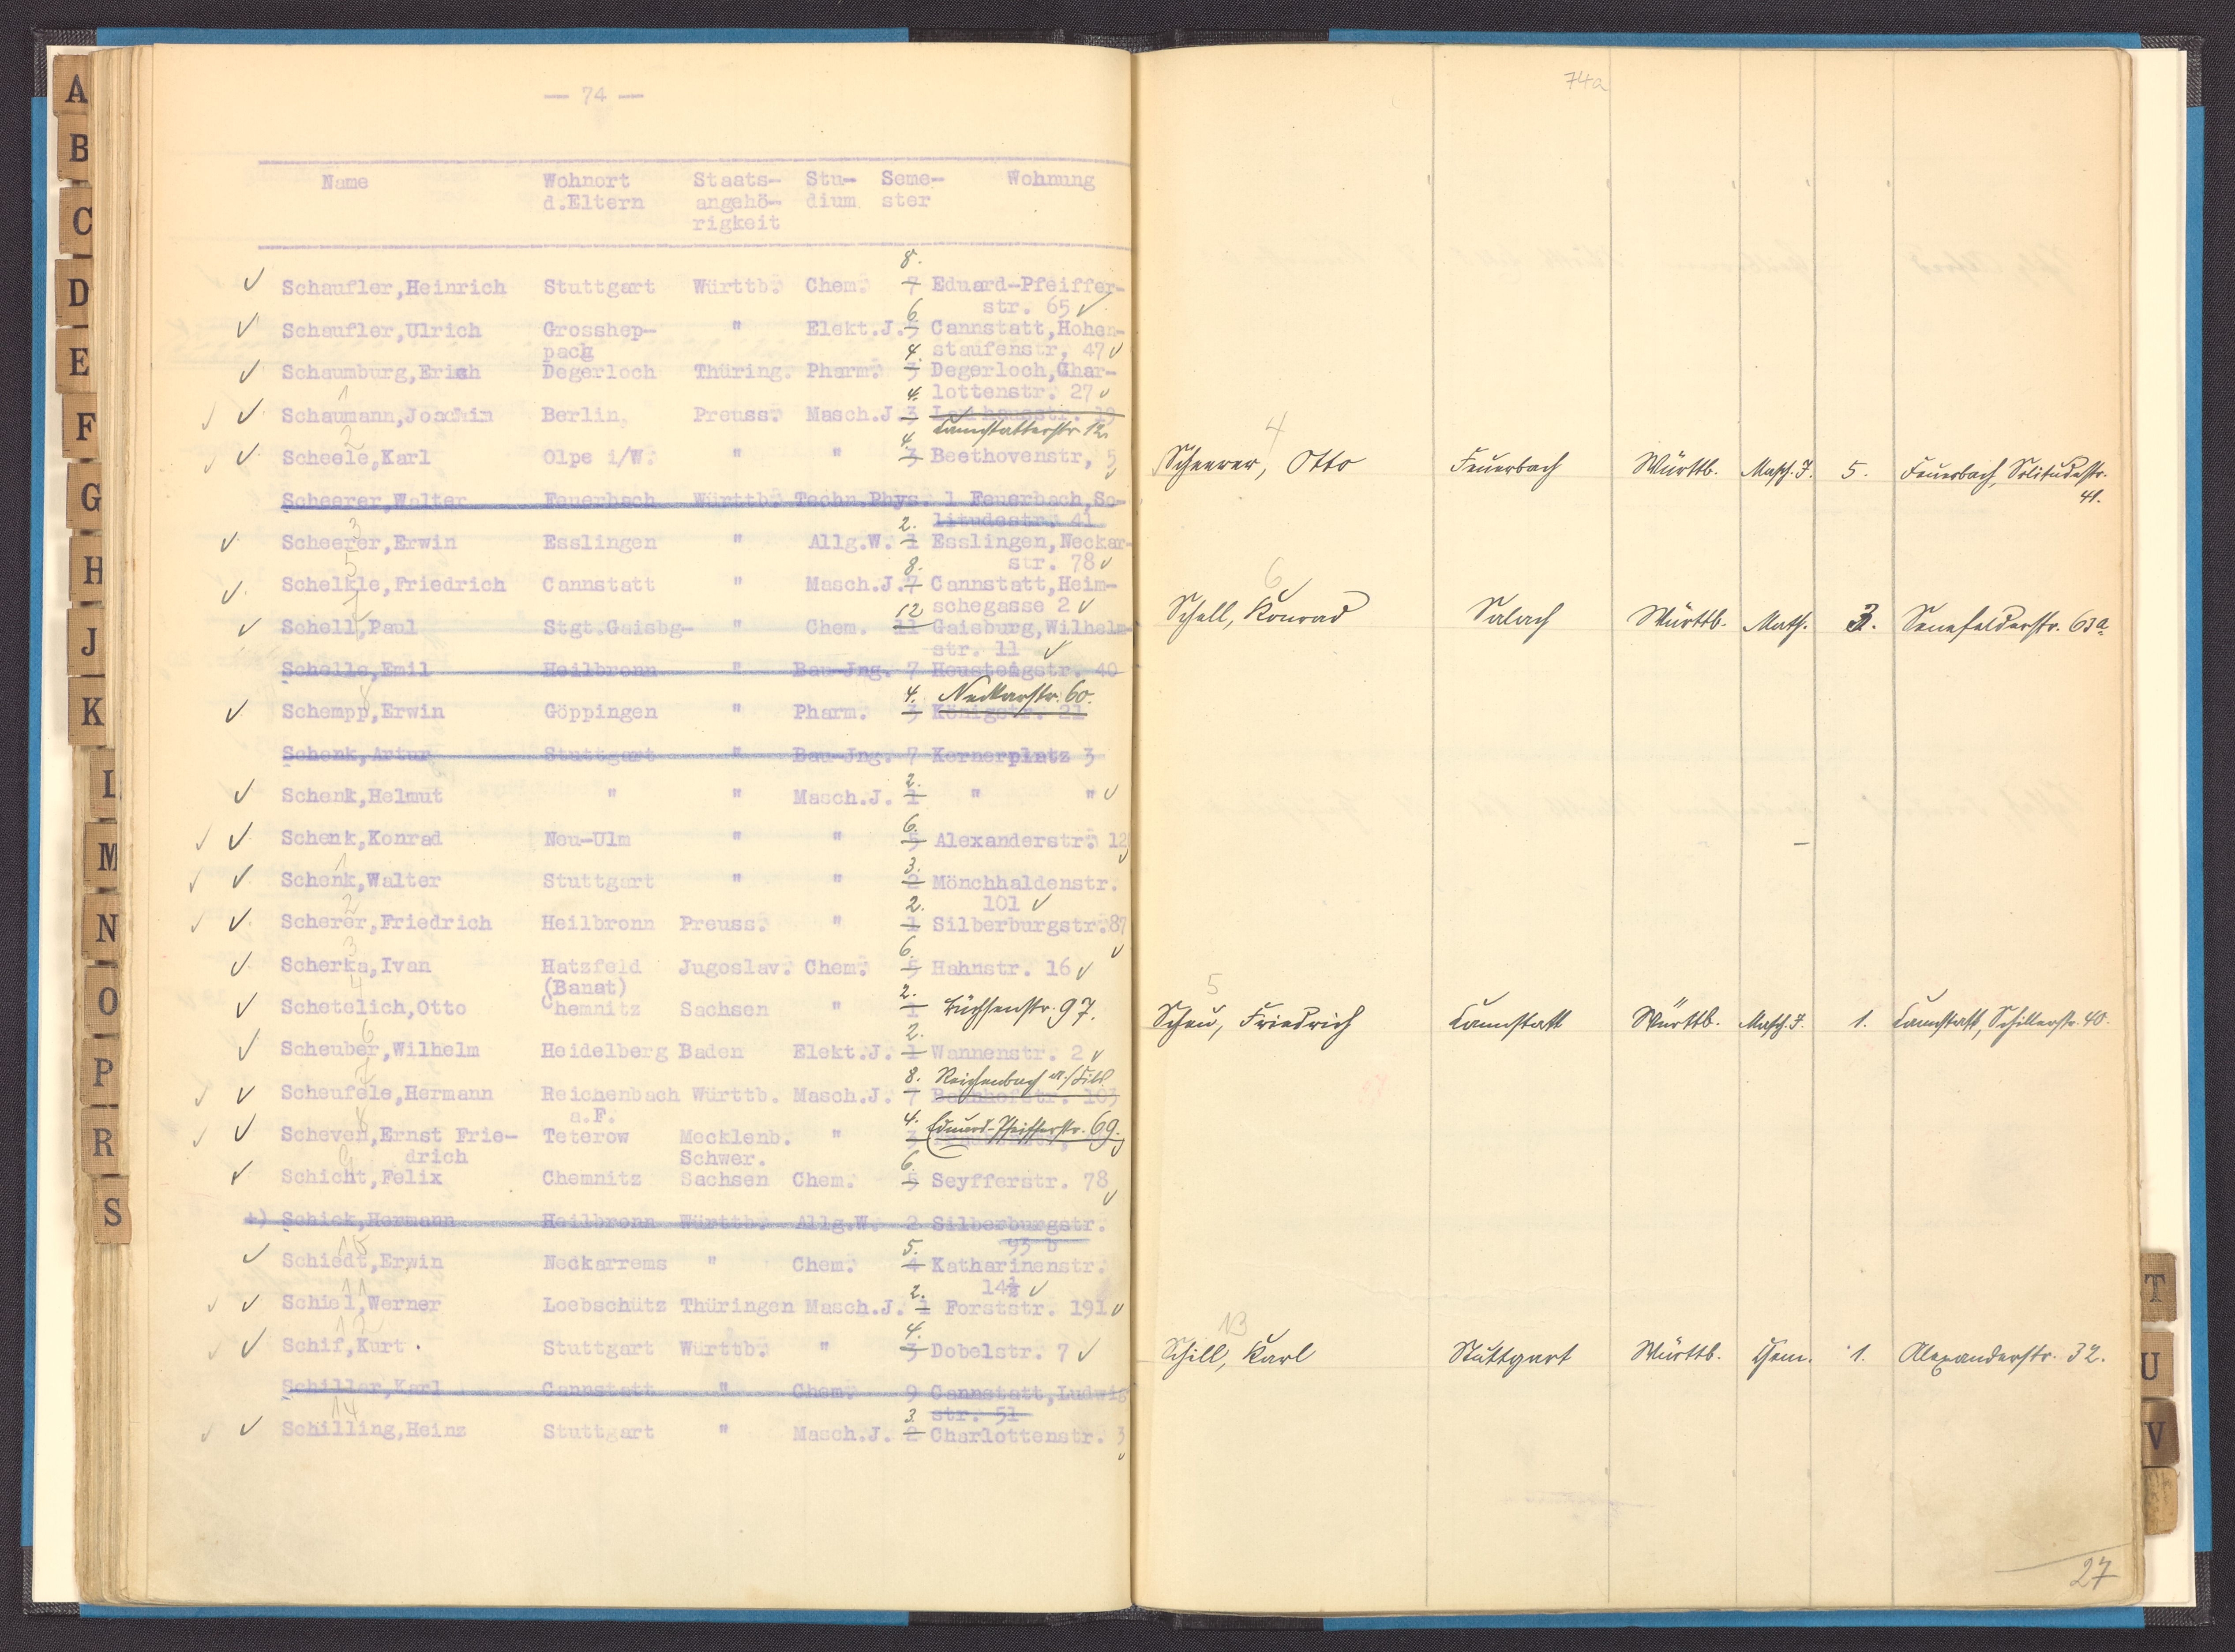 A
B
C
D
E
F
G
H
J
K
L
M
N
O
P
R
S
— 74 —
Name Wohnort Staats- Stu- Seme- Wohnung
d.Eltern angehö- dium ster
rigkeit
8.
Schaufler,Heinrich Stuttgart Württb. Chem. 7 Eduard-Pfeiffer-
6 str. 65
Schaufler,Ulrich Grosshep- " Elekt.J. 5 Cannstatt,Hohen-
pach 4. staufenstr, 47
Schaumburg,Erich Degerloch Thüring. Pharm. 3 Degerloch,Char-
1 4. lottenstr. 27
Schaumann,Joachim Berlin Preuss. Masch.J. 3
2 4. Cannstatterstr. 12
Scheele,Karl Olpe i/W. " " 3 Beethovenstr, 5
Scheerer,Walter Feuerbach Württb. Techn.Phys. 1 Feuerbach,So-
3 2. litudestr. 41
Scheerer,Erwin Esslingen " Allg.W. 1 Esslingen,Neckar-
5 8. str. 78
Schelkle,Friedrich Cannstatt " Masch.J. 7 Cannstatt,Heim-
7 12 schegasse 2
Schell,Paul Stgt.Gaisbg- " Chem. 11 Gaisburg,Wilhelm-
str. 11
Schelle,Emil Heilbronn " Bau-Jng. 7 Heusteigstr. 40
8 4. Neckarstr. 60.
Schempp,Erwin Göppingen " Pharm. 3 Königstr. 21
Schenk,Artur Stuttgart " Bau-Jng. 7 Kernerplatz 3
2.
Schenk,Helmut " " Masch.J. 1 " "
6.
Schenk,Konrad Neu-Ulm " " 5 Alexanderstr. 12
1 3.
Schenk,Walter Stuttgart " " 2 Mönchhaldenstr.
2 2. 101
Scherer,Friedrich Heilbronn Preuss. " 1 Silberburgstr.87
3 6.
Scherka,Ivan Hatzfeld Jugoslav. Chem. 5 Hahnstr. 16
4 (Banat) 2.
Schetelich,Otto Chemnitz Sachsen " 1 Büchsenstr. 97.
6 2.
Scheuber,Wilhelm Heidelberg Baden Elekt.J. 1 Wannenstr. 2
7 8. Reichenbach a./Fils
Scheufele,Hermann Reichenbach Württb. Masch.J. 7 Bahnhofstr. 103
8 a.F. 4. Eduard-Pfeifferstr. 69.
Scheven,Ernst Frie- Teterow Mecklenb. " 3
9 drich Schwer. 6.
Schicht,Felix Chemnitz Sachsen Chem. 5 Seyfferstr. 78
+) Schick,Hermann Heilbronn Württb. Allg.W. 2 Silberburgstr.
10 5. 93 b
Schiedt,Erwin Neckarrems " Chem. 4 Katharinenstr.
11 2. 14½
Schiel,Werner Loebschütz Thüringen Masch.J. 1 Forststr. 191
12 4.
Schif,Kurt. Stuttgart Württb. " 3 Dobelstr. 7
Schiller,Karl Cannstatt " Chem. 9 Cannstatt,Ludwig
14 3. str. 51
Schilling,Heinz Stuttgart " Masch.J. 2 Charlottenstr. 3
74a
4
Scheerer, Otto Feuerbach Württb. Masch.J. 5. Feuerbach, Solitudestr.
41.
6
Schell, Konrad Salach Württb. Math. 3. Senefelderstr. 63a
5
Scheu, Friedrich Cannstatt Württb. Masch.J. 1. Cannstatt, Schillerstr. 40.
13
Schill, Karl Stuttgart Württb. Chem. 1. Alexanderstr. 32.
27
T
U
V